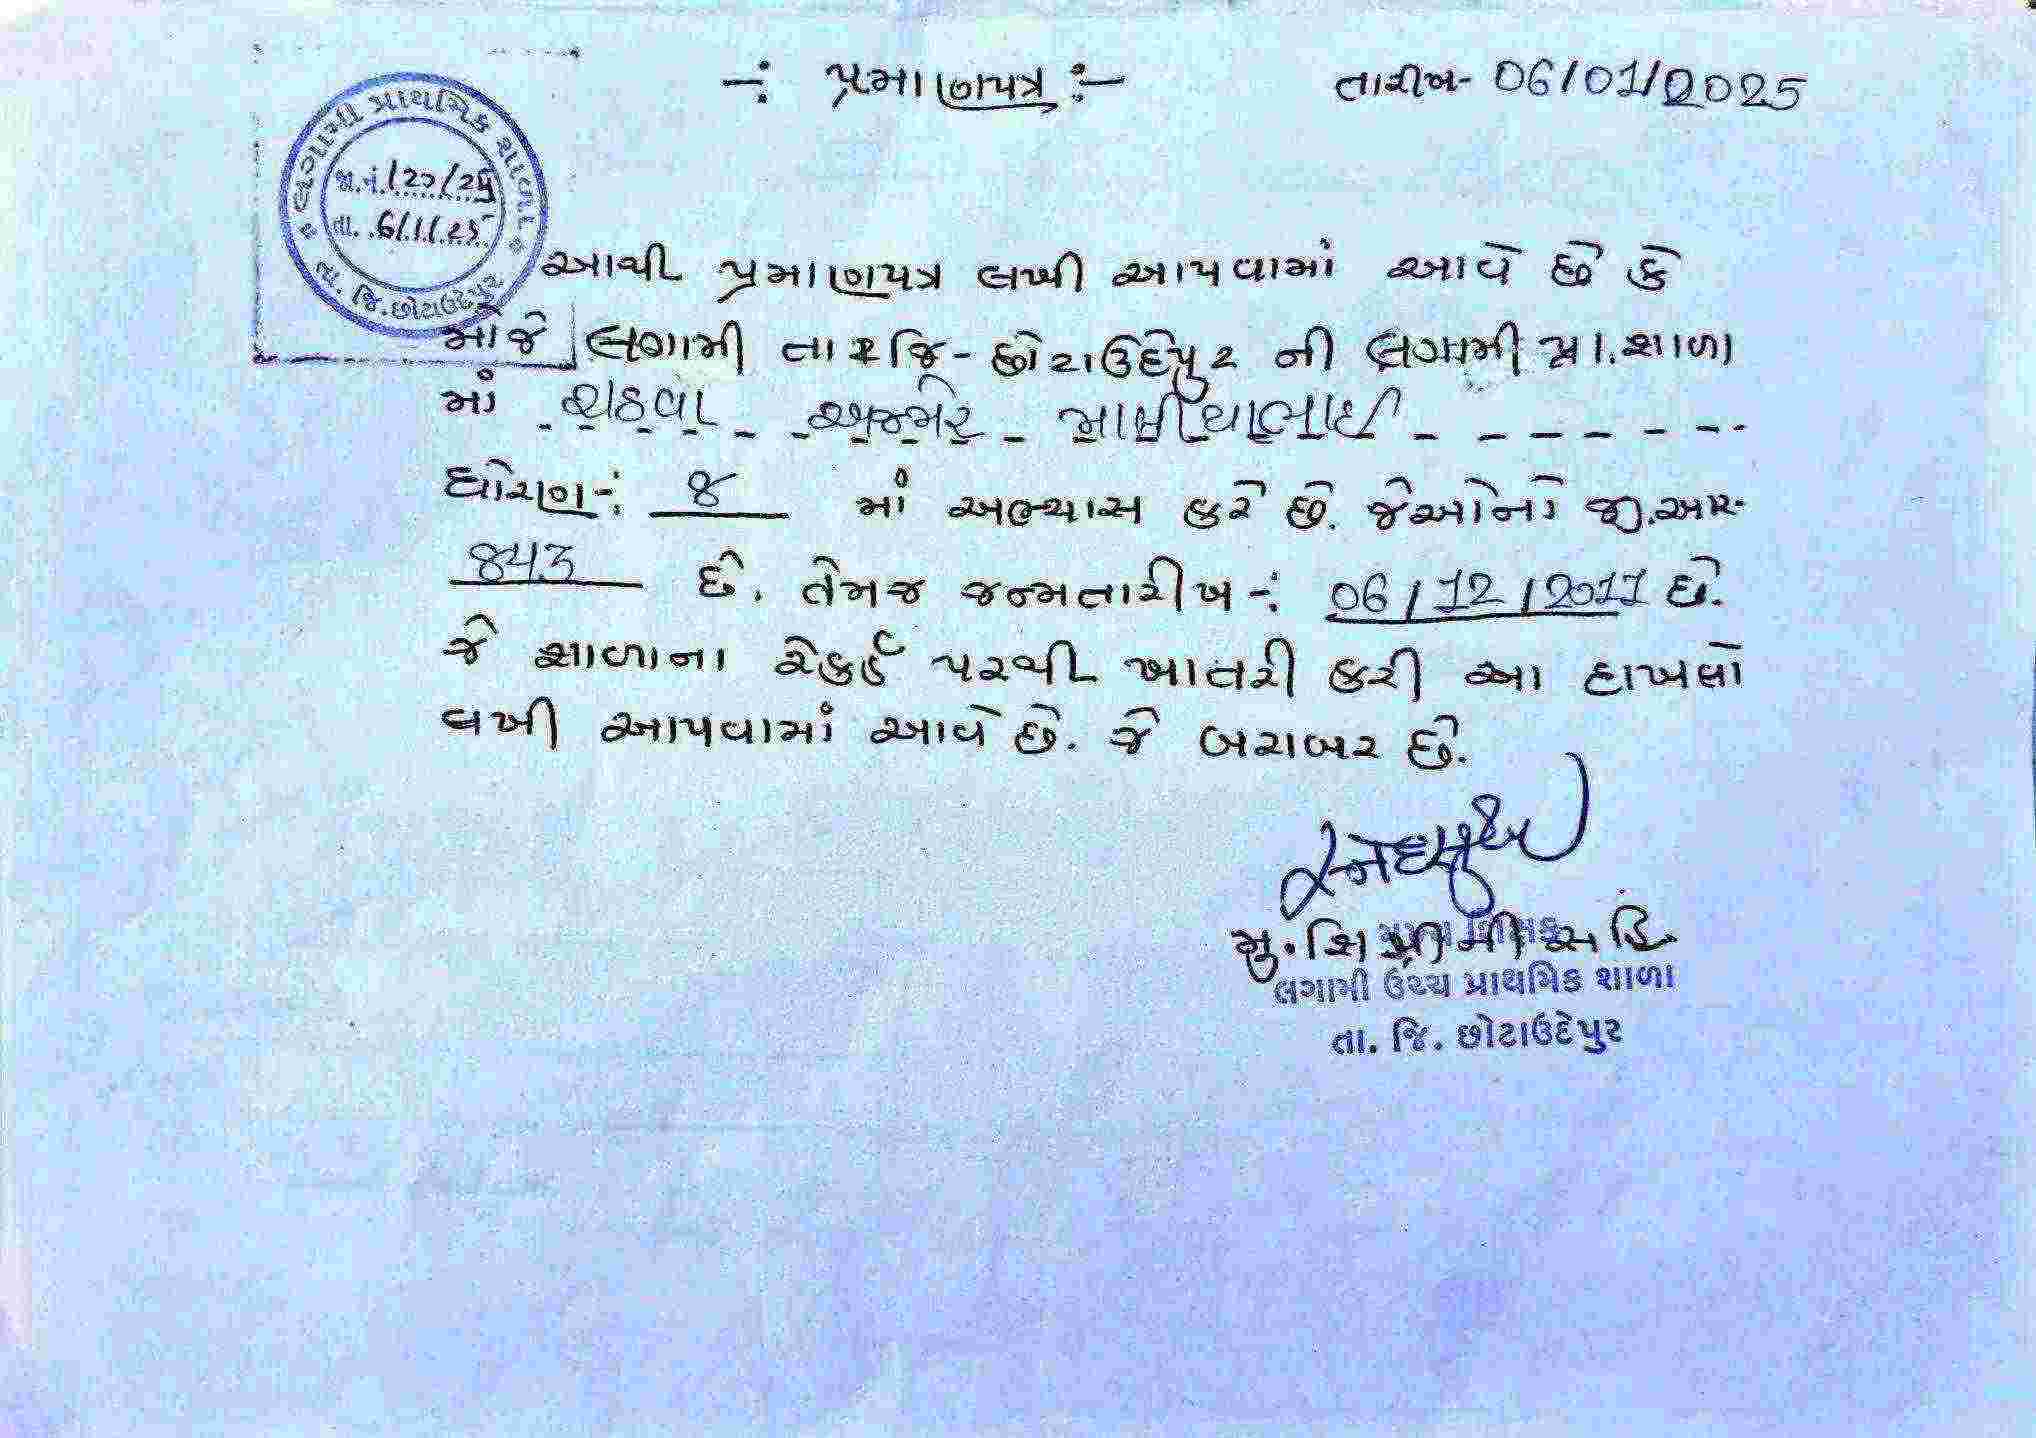 -: પ્રમાણપત્ર :-
તારીખ- 06/01/2025
લગામી પ્રાથમિક શાળા
જા.નં.
તા. 6/1/25
તા. જિ. છોટાઉદેપુર
આથી પ્રમાણપત્ર લખી આપવામાં આવે છે કે
મોજે લગામી તા૨જિ-છોટાઉદેપુર ની લગામી પ્રા.શાળા
માં રાઠવા અજમેર
ધોરણ-: 8 માં અભ્યાસ કરે છે. જેઓનો જી.આર-
843 છે. તેમજ જન્મતારીખ -: 06/12/2011 છે.
જે શાળાના રેકર્ડ પરથી ખાતરી કરી આ દાખલો
લખી આપવામાં આવે છે. જે બરાબર છે.
મુ.શિ
લગામી ઉચ્ચ પ્રાથમિક શાળા
તા. જિ. છોટાઉદેપુર